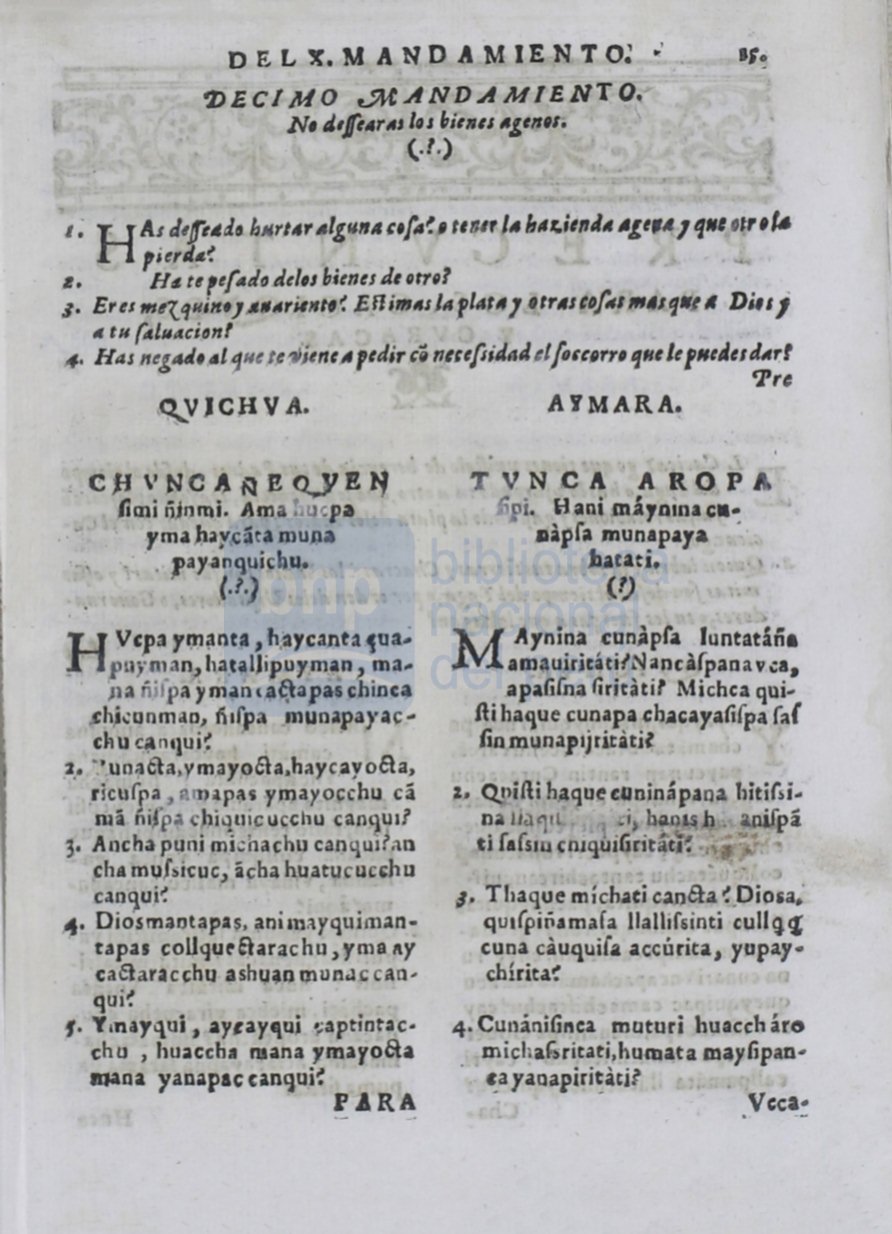 DEL X. MANDAMIENTO.
15.
DECIMO MANDAMIENTO.
No dessearas los bienes agenos.
(.?.)
1. HAs desseado hurtar alguna cosa? o tener la hazienda agena y que otro la
pierda?
2. Ha te pesado delos bienes de otro?
3. Eres mezquino y auariento? Estimas la plata y otras cosas mas que a Dios y
a tu saluacion?
4. Has negado al que te viene a pedir cõ necessidad el soccorro que le puedes dar?
Pre
QVICHVA.
CHVNCAÑEQVEN
simi ñinmi. Ama hucpa
yma haycãta muna
payanquichu.
(.?.)
HVcpa ymanta, haycanta qua-
puyman, hatallipuyman, ma-
na ñispa ymantactapas chinca
chicunman, ñispa munapayac-
chu canqui?
2. ymayocta, haycayocta,
ricuspa, amapas ymayocchu cã
mã ñispa chiquicucchu canqui?
3. Ancha puni michachu canqui? an
cha mussicuc, ãcha huatucucchu
canqui?
4. Diosmantapas, animayquiman-
tapas collquectarachu, yma ay
cactaracchu ashuan munac can-
qui?
5. Ymayqui, aycayqui captintac-
chu, huaccha mana ymayocta
mana yanapac canqui?
PARA
AYMARA.
TVNCA AROPA
sipi. Hani máynina cu-
nàpsa munapaya
hatati.
(?)
MAynina cunàpsa luntatáña
amauiritáti? Nancàspana vca,
apasisna siritàti? Michca qui-
sti haque cunapa chacayasispa sas
sin munapijritàti?
2. Quisti haque cuninápana hitissi-
na hanis anispã
ti sassin cniquisiritàti?
3. Thaque míchati cancta? Diosa,
quispiñamasa llallissinti cullqq
cuna càuquisa accúrita, yupay-
chírita?
4. Cunánisinca muturi huacch áro
michasiritati, humata maysipan-
ca yanapiritàti?
Vcca-
bnp biblioteca
nacional
del